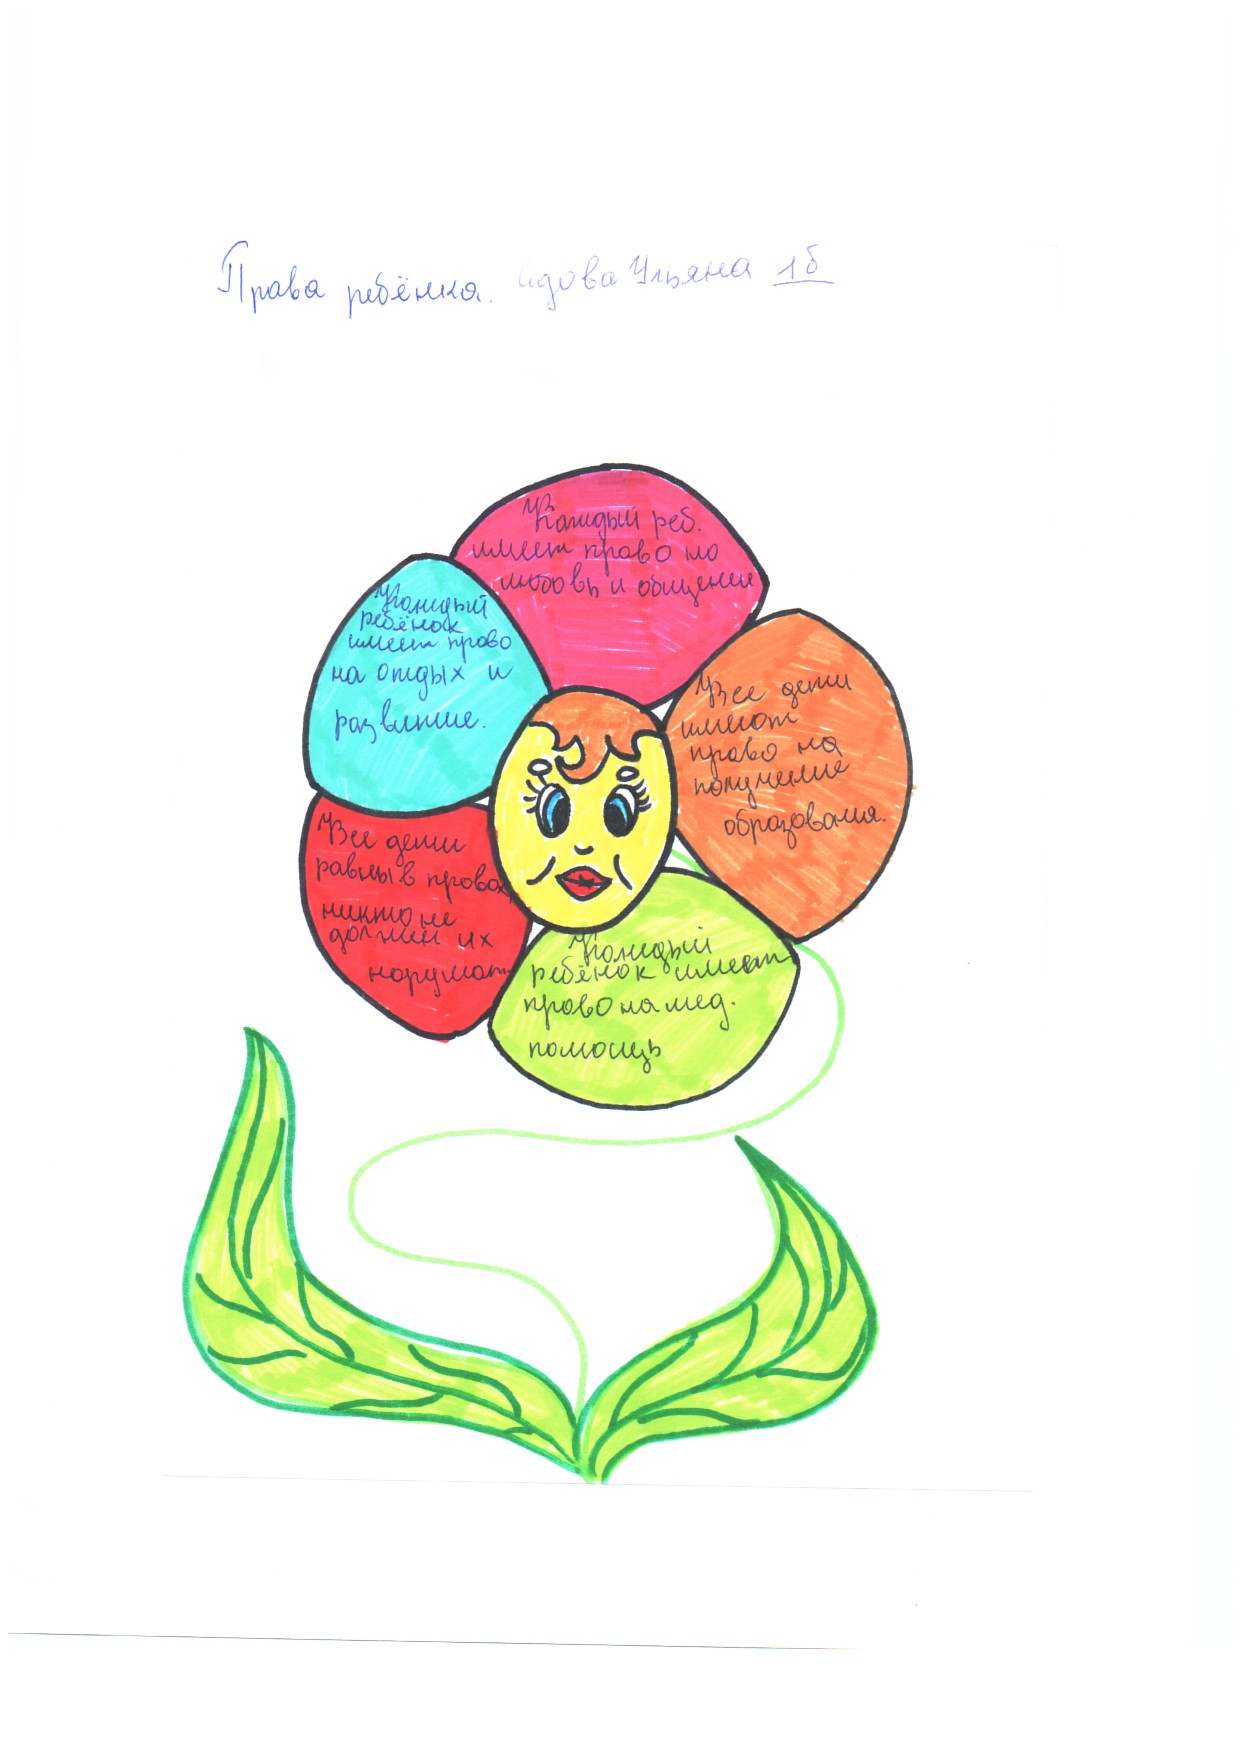 Права ребёнка. Ульяна 1б
Каждый реб.
имеет право на
любовь и общение
Каждый
ребёнок
имеет право
на отдых и
развитие.
Все дети
имеют
право на
получение
образования.
Все дети
равны в правах,
никто не
должен их
нарушать
Каждый
ребёнок имеет
право на мед.
помощь